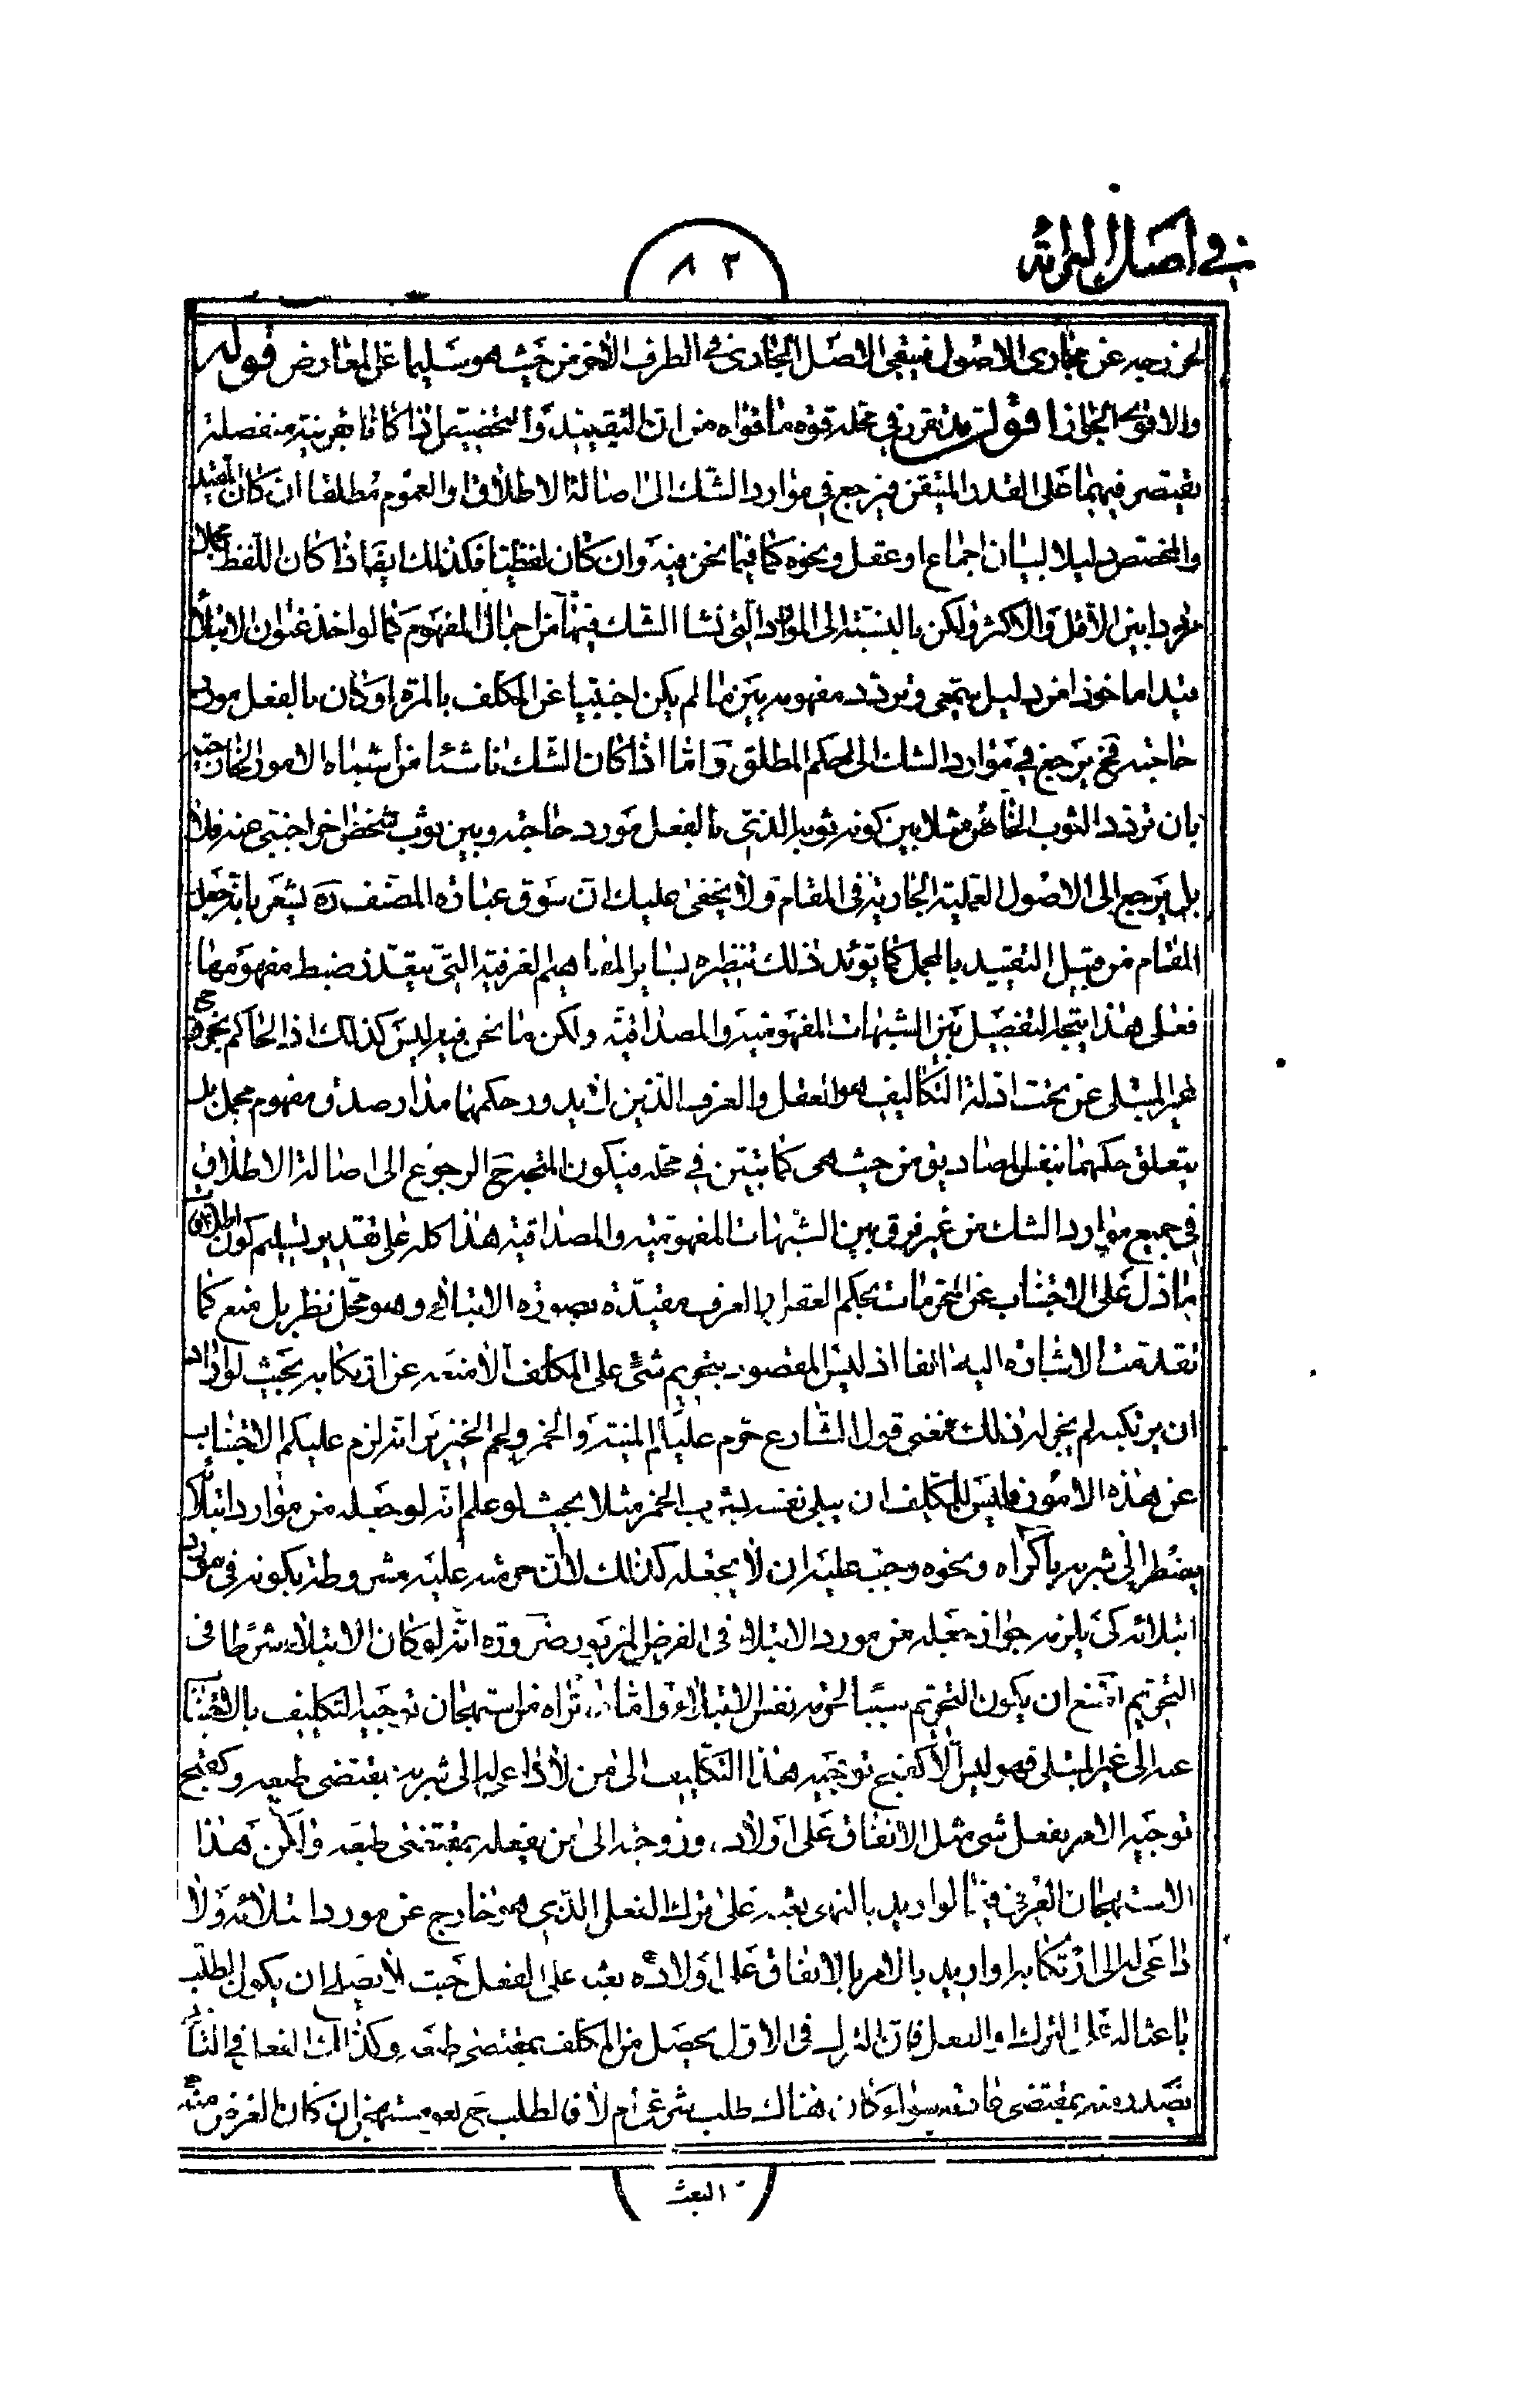 في اصل البرائة
٨٣
لخروجه عن مجارى الاصول فيبقى الاصل الجارى فى الطرف الآخر من حيث هو سليما عن المعارض قوله
والاقوى الجواز اقول قد تقرر فى محله قوة ما قواه من ان التقييد والتخصيص اذا كانا بقرينة منفصلة
يقتصر فيهما على القدر المتيقن فيرجع في موارد الشك الى اصالة الاطلاق والعموم مطلقا ان كان المقيد
والمخصص دليلا لبيا من اجماع او عقل ونحوه كما فيما نحن فيه وان كان لفظيا فكذلك ايضا اذا كان اللفظ مجملا
مرددا بين الاقل والاكثر ولكن بالنسبة الى الموارد التى نشا الشك فيها من اجمال المفهوم كما لو اخذ عنوان الابتلاء
قيدا ماخوذا فى دليل سمعى وتردد مفهومه بين ما لم يكن اجنبيا عن المكلف بالمرة او كان بالفعل مورد
حاجته فح يرجع في موارد الشك الى الحكم المطلق واما اذا كان الشك ناشئا من اشتباه الامور الخارجية
بان تردد الثوب الخاص مثلا بين كونه ثوبه الذى بالفعل مورد حاجته وبين ثوب شخص اخر اجنبى عنه فلا
بل يرجع الى الاصول العملية الجارية فى المقام ولا يخفى عليك ان سوق عبارة المصنف ره يشعر بانه جعل
المقام من قبيل التقييد بالمجمل كما يؤيد ذلك تنظيره بساير المفاهيم العرفية التى يتعذر ضبط مفهومها
فعلى هذا يتجه التفصيل بين الشبهات المفهومية والمصداقية ولكن ما نحن فيه ليس كذلك اذ الحاكم بخروج
غير المبتلى عن تحت ادلة التكاليف هو العقل والعرف الذين لا يدور حكمهما مدار صدق مفهوم مجمل بل
يتعلق حكمهما بنفس المصاديق من حيث هى كما تبين في محله فيكون المتجه ح الرجوع الى اصالة الاطلاق
في جميع موارد الشك من غير فرق بين الشبهات المفهومية والمصداقية هذا كله على تقدير تسليم كون اطلاق
ما دل على الاجتناب عن المحرمات بحكم العقل والعرف مقيدة بصورة الابتلاء وهو محل نظر بل منع كما
تقدمت الاشارة اليه انفا اذ ليس المقصود بتحريم شئ على المكلف الا منعه عن ارتكابه بحيث لو اراد
ان يرتكبه لم يجز له ذلك فمعنى قول الشارع حرم عليكم الميتة والخمر ولحم الخنزير انه لزم عليكم الاجتناب
عن هذه الامور فليس للمكلف ان يبلى نفسه بشرب الخمر مثلا بحيث لو علم انه لو جعله من موارد ابتلائه
يضطر الى شربه باكراه ونحوه وجب عليه ان لا يجعله كذلك لا ان حرمته عليه مشروطة بكونه فى مورد
ابتلائه كى يلزمه جواز جعله من مورد الابتلاء فى الفرض المزبور ضرورة انه لو كان الابتلاء شرطا فى
التحريم امتنع ان يكون التحريم سببا لحرمة نفس الابتلاء واما ما تراه من استهجان توجيه التكليف بالاجتناب
عنه الى غير المبتلى فهو ليس الا كقبح توجيه هذا التكليف الى من لا داعى له الى شربه بمقتضى طبعه وكقبح
توجيه الامر بفعل شئ مثل الانفاق على اولاده وزوجته الى من يفعله بمقتضى طبعه ولكن هذا
الاستهجان العرفى فيما لو اريد بالنهى بعثه على ترك الفعل الذى هو خارج عن مورد ابتلائه ولا
داعى له الى ارتكابه او اريد بالامر بالانفاق على اولاده بعثه على الفعل حيث لا يصلح ان يكون الطلب
باعثا له على الترك او الفعل فان الترك فى الاول يحصل من المكلف بمقتضى طبعه وكذلك الفعل في الثانى
يصدر منه بمقتضى عادته سواء كان هناك طلب شرعى ام لا فالطلب ح لغو مستهجن ان كان الغرض منه
البعث